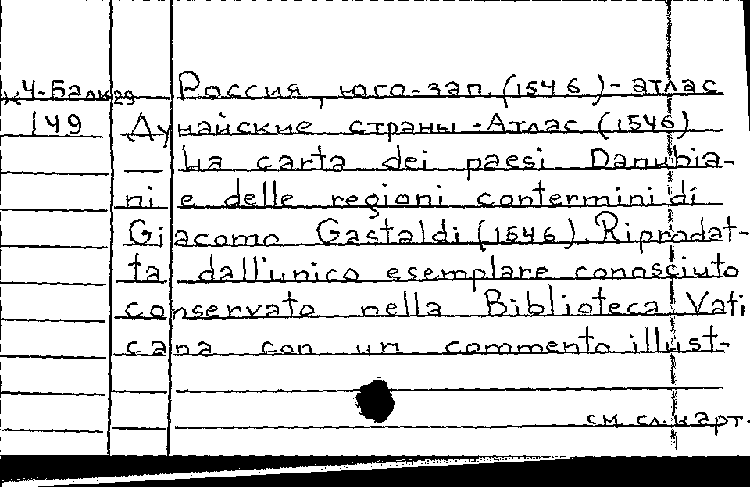 Ч-Балк Россия, юго-зап. (1546) - атлас
149 Дунайские страны - Атлас (1546)
La carta dei paesi Danubia-
ni e delle regioni contermini di
Giacomo Gastaldi (1546). Riprodat-
ta dall'unico esemplare conosciuto
conservato nella Biblioteca Vati
cana con un commento illust-
см. сл. карт.